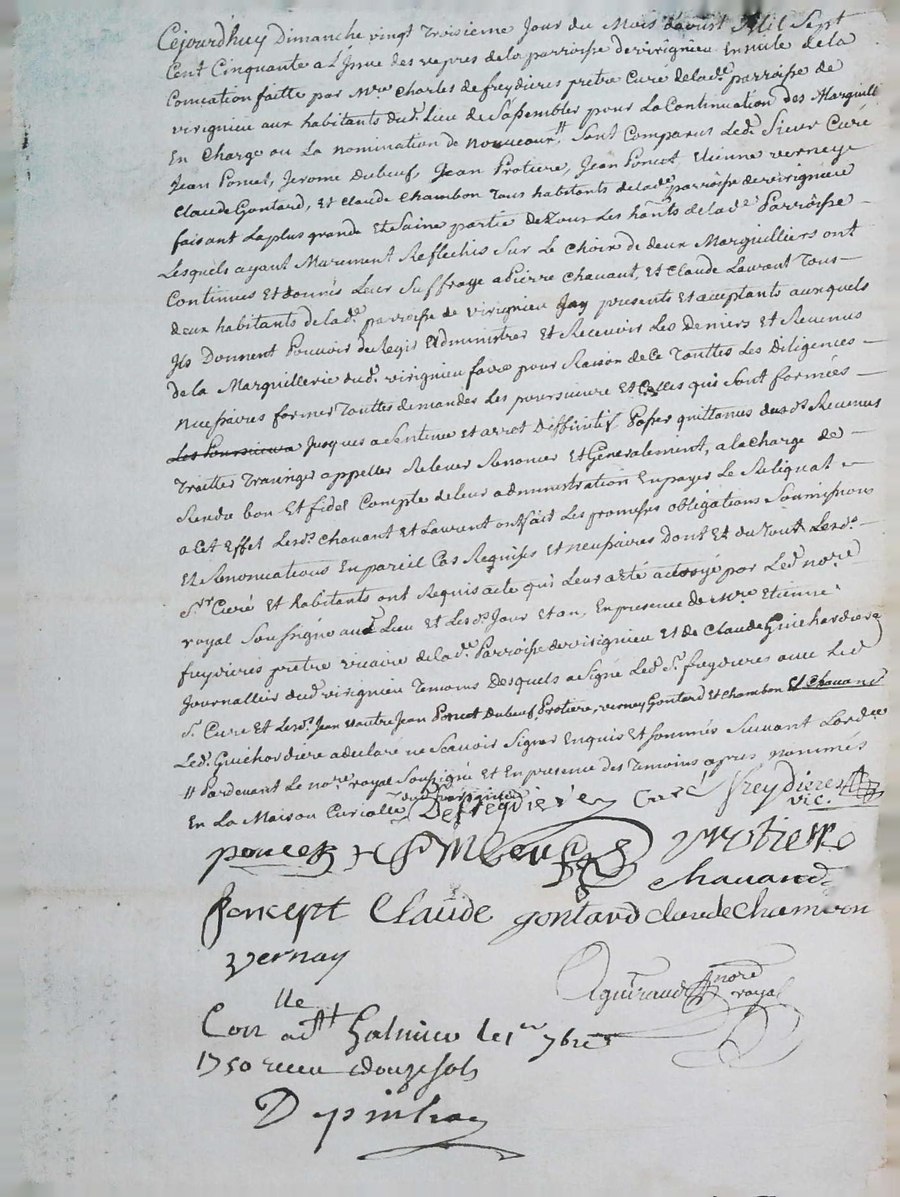 Cejourd'huy Dimanche vingt Troisieme Jour du Mois daoust Mil Sept
Cent Cinquante a L'Jssue des vepres de la parroisse de virignieu Ensuite de la
Convocation faitte par Mre Charles de freydieres pretre Curé de lade parroisse de
virignieu aux habitants dud. Lieu de Sassembler pour La Continuation des Marguill
En Charge ou La nomination de nouveaux, # Sont Comparus Led. Sieur Curé
Jean Poncet, Jerome Dubeuf, Jean Protiere, Jean Poncet, Etienne verneye
Claude Gontard, Et Claude Chambon Tous habitants de lade parroisse de virignieu
faisant La plus grande Et Saine partie de Tous Les hants de lade Parroisse
Lesquels ayant Murement Reflechis Sur Le Choix de deux Marguilliers ont
Continues Et donnés Leur Suffrage a Pierre Chauant, Et Claude Laurant Tous
deux habitants de lad. parroisse de virignieu Jcy presents Et acceptants auxquels
Jls Donnent Pouvoir de Regir Administrer Et Recevoir Les Deniers Et Revenus
de la Marguillerie dud. virignieu faire pour Raison de Ce Touttes Les Diligences
necessaires former Touttes demandes Les poursuivre Et Celles qui Sont formées
Les Poursuivre Jusques a Sentence et arret Diffinitif Passer quittances desds Revenus
Traitter Transiger appeller Relever Renoncer Et Generalement, a la Charge de
Rendre bon Et fidel Compte de leur administration En payer Le Reliquat
a Cet Effet Lesds Chauant et Laurent ont fait Les promesses obligations Soumissions
Et Renonciations En pareil Cas Requises Et necessaires Dont Et du Tout Lesds
Sr Curé Et habitants ont Requis acte qui Leur a été octroyé par Led nore
royal Soussigné aud Lieu Et Lesds Jour et an, En presence de Mre Etienne
freydieres pretre vicaire de lade Parroisse de virignieu Et de Claude Guichardiere
Journallier dud virignieu Temoins Desquels a Signé Led. Sr freydieres avec Led
Sr Curé Et Lesds Jean Et autre Jean Poncet Dubeuf, Protiere, verney Gontard Et Chambon Et Chauand
Led. Guichardiere a declaré ne Scavoir Signer Enquis Et Sommés Suivant Lordce
# Pardevant Le nore royal Soussigné Et En presence des Temoins apres nommés
En La Maison Curialle dud virignieu
Defreydieres Curé Freydieres
vic.
poncet Dubeuf protiere
chauand
poncept Claude gontard claude Chambon
vernay
Aguiraud nore
royal
Conlle a St Galmier le 1er 7bre
1750 receu douze sols
Depinhac